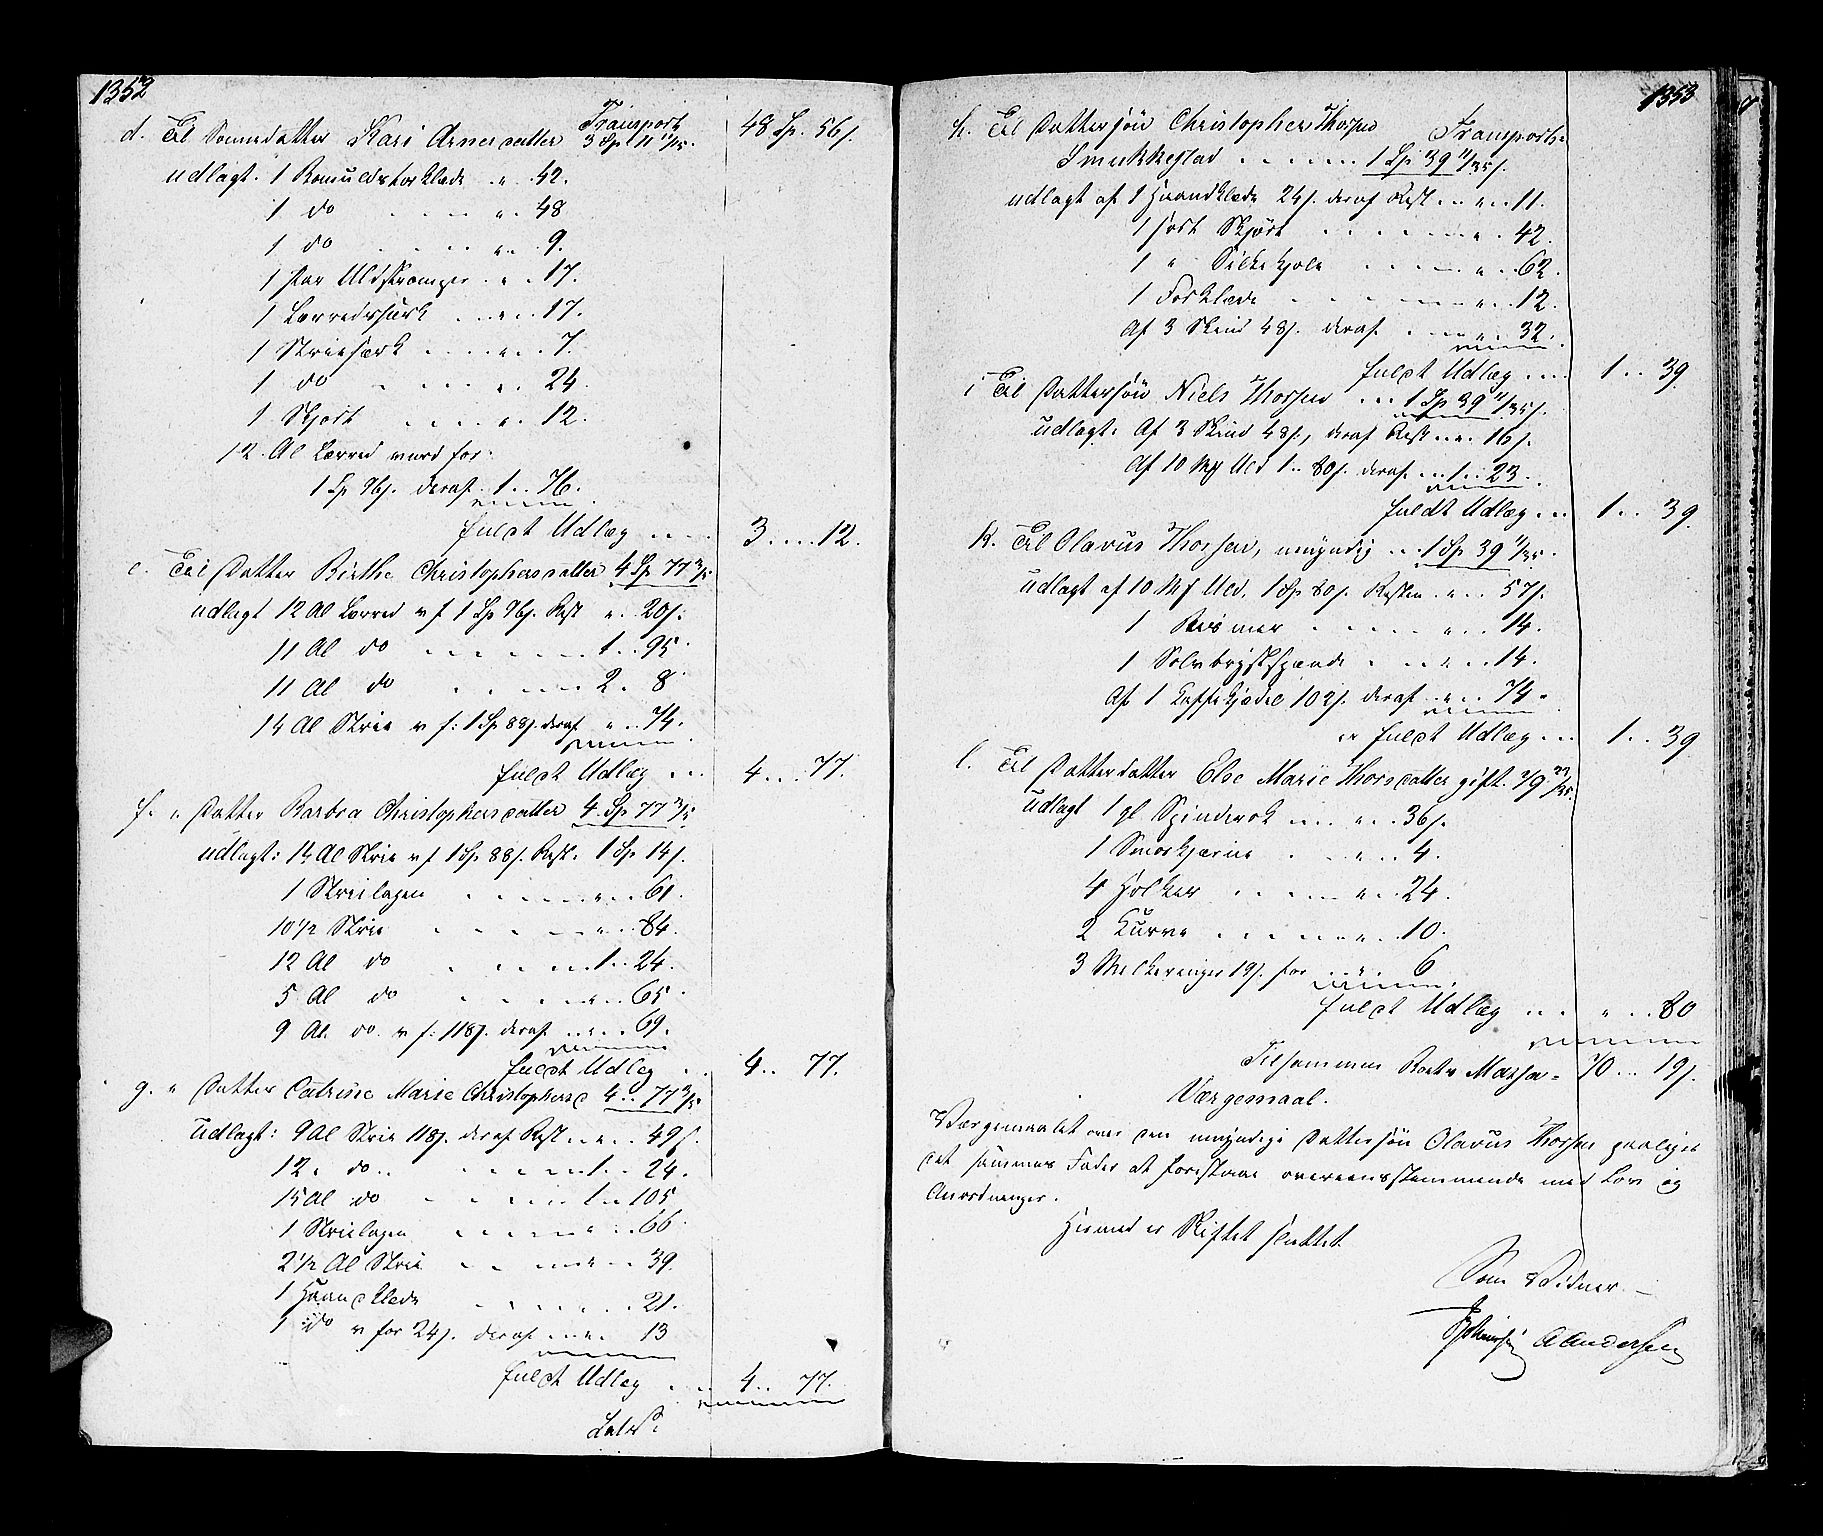 1352
Transport 48 Sp. 56 s.
d. Til Sønnedatter Kari Arnesdatter 3 Sp. 11 11/35.
udlagt. 1 Bomuldstørklæde " . 42.
1 do . . . . " . 48
1 do . . . . " . 9.
1 Par Uldstrømper . " . 17.
1 Lærredssærk . . " . 17.
1 Striesærk . . . . " . 7.
1 do . . . . " . 24.
1 Skjørt . . . . " . 12.
12 Al Lærred vurd for:
1 Sp 96 s. deraf . 1 . . 76.
fuldt Udlæg . . . . 3 . . . . 12.
e. Til Datter Birthe Christophersdatter 4 Sp 77 3/5
udlagt 12 Al Lærred v f 1 Sp 96 s. Rest " . 20 s.
11 Al do . . . . . . 1 . . 95.
11 Al do . . . . . 2 . 8
14 Al Strie v f: 1 Sp 88 s. deraf " . . 74.
fuldt Udlæg . . . 4 . . . 77.
f. " Datter Barbra Christophersdatter 4 Sp 77 3/5
udlagt: 14 Al Strie v f 1 Sp. 88 s. Rest. 1 Sp 14 s.
1 Strielagen . . . . . . " . . 61.
10 1/2 Strie . . . . . " . . 84.
12 Al do . . . . . 1 . . 24.
5 Al do . . . . . " . . 65.
9 Al. do. v f: 118 s. deraf . . " . . 69.
fuldt Udlæg . . 4 . . 77.
g. " Datter Catrine Marie Christophersd 4 . . 77 3/5
udlagt: 9 Al Strie 118 s. deraf Rest . . " . . 49 s.
12. do . . . . . . . 1 . . 24.
15 Al do . . . . . . 1 . . 105
1 Strielagen . . . . . " . . 66.
2 1/2 Al Strie . . . . " . . 39.
1 Haandklæde . . . . . . 21.
1 do v for 24 s. deraf . . " . 13
fuldt Udlæg . . . 4 . . 77.
Lats.
1353
Transport.
h. Til Dattersøn Christopher Thorsen
Smukkestad . . . . . . 1 Sp 39 11/35 s.
udlagt af 1 Haandklæde 24 s. deraf Rest . . " . . 11.
1 sort Skjørt . . . . . . " . . 42.
1 " Silkekjole . . . . . " . . 62.
1 Forklæde . . . . . . " . . 12.
Af 3 Skind 48 s. deraf . . . " . . 32.
fuldt Udlæg . . . . 1 . . 39
i Til Dattersøn Niels Thorsen . . . 1 Sp 39 11/35 s.
udlagt. Af 3 Skind 48 s., deraf Rest . . " . 16 s.
Af 10 Mk Uld 1 . . 80 s. deraf . . 1 . . 23.
fuldt Udlæg . . . 1 . . 39.
k. Til Olavus Thorsen, umyndig . . . 1 Sp 39 11/35.
udlagt af 10 Mk Uld, 1 Sp 80 s. Resten . " . . 57 s.
1 Bismer . . . . . . " . . 14.
1 Sølvbrystspænde . . . " . . 14.
Af 1 Kaffekjedel 102 s. deraf . . " . . 74.
er fuldt Udlæg . . . 1 . . 39
l. Til Datterdatter Else Marie Thorsdatter gift. 79 23/35.
udlagt 1 gl Spinderok . . . . " . . 36 s.
1 Smørkjærne . . . " . . 4.
4 Holker . . . . . " . . 24.
2 Kurve . . . . . . " . . 10.
3 Melkeringer 19 s. for . . " . 6
fuldt Udlæg . . . " . . 80
Tilsammen Boets Massa = 70 . . . 19 s.
Værgemaal.
Værgemaalet over den umyndige Dattersøn Olavus Thorsen paalegges
det sammes Fader at forestaae overeensstemmende med Lov og
Anordninger.
Hermed er Skiftet sluttet
Som Vidner.
A Andersen